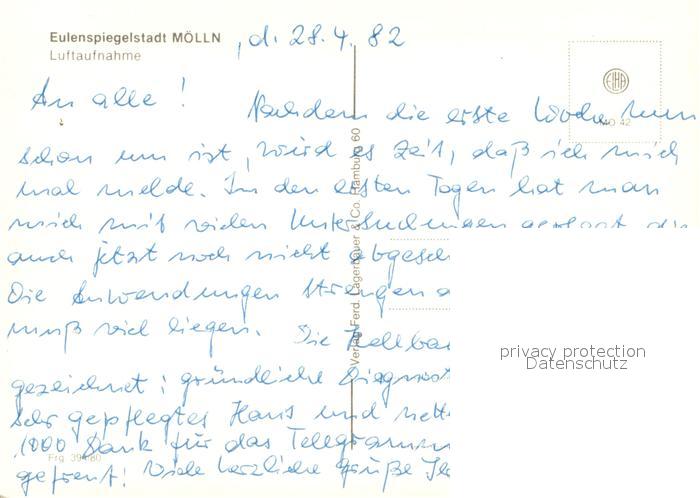 Eulenspiegelstadt MÖLLN , d. 28.4.82
Luftaufnahme
EKHA
MO 42
An alle!
Nachdem die erste Woche nun
schon um ist, wird es Zeit, daß ich mich
mal melde. In den ersten Tagen hat man
mich mit vielen Untersuchungen geplagt, die
auch jetzt noch nicht
Die Anwendungen strengen
muß viel liegen. Die
gezeichnet: gründliche
Sehr gepflegtes Haus und
1000 Dank für das Telegramm
gefreut! Viele herzliche Grüße
Verlag Ferd. Lagerbauer & Co. Hamburg 60
Frg. 394/80
privacy protection
Datenschutz